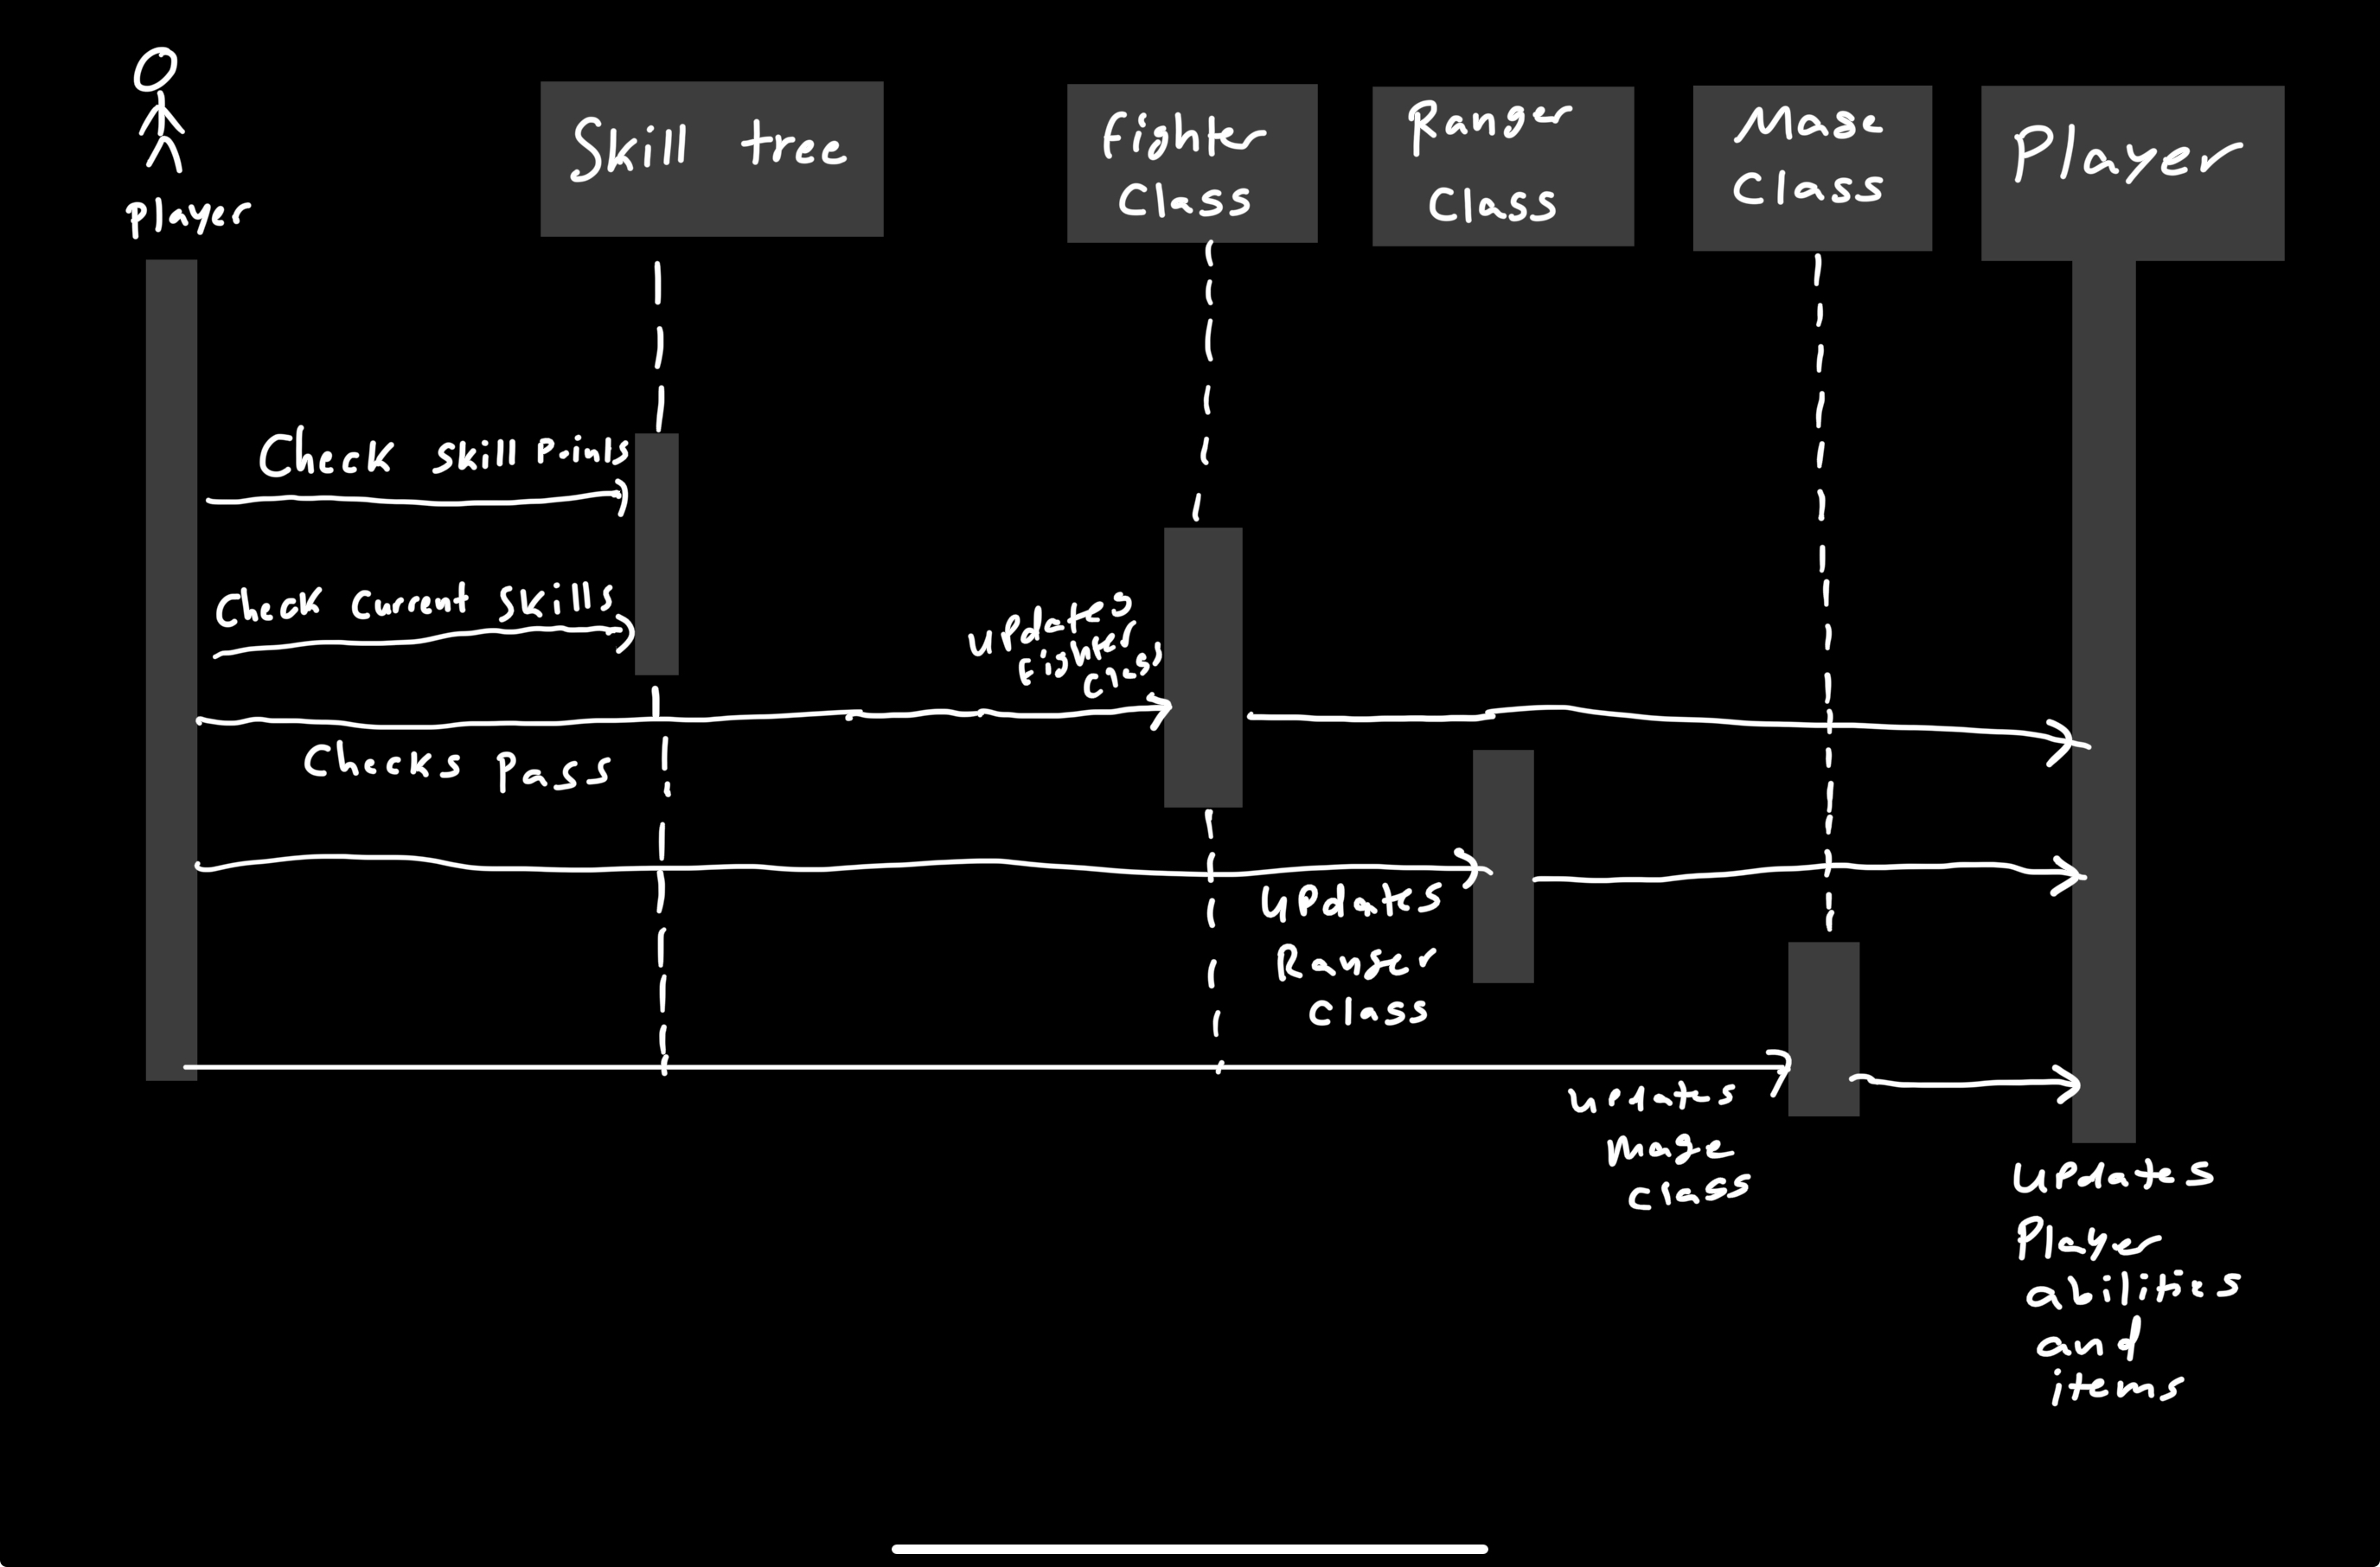 Player
Skill tree
Fighter
Class
Ranger
Class
Mage
Class
Player
Check Skill Points
Check Current Skills
Updates
Fighter
Class
Checks Pass
Updates
Ranger
Class
Updates
Mage
Class
Updates
Player
abilities
and
items